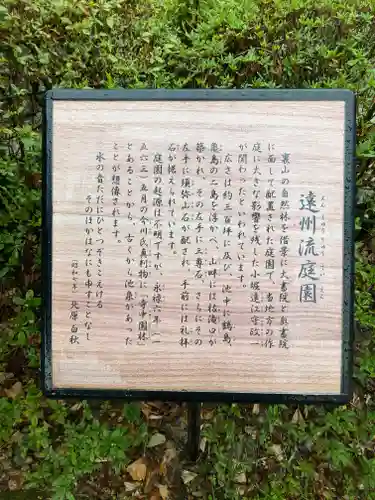 遠州流庭園
えんしゅうりゅうていえん
裏山の自然林を借景に大書院と奥書院
に面して配置された庭園で、当地方の作
庭に大きな影響を残した小堀遠江守政一
が関わったといわれています。
広さは約三百坪に及び、池中に鶴島、
亀島の二島を浮かべ、山畔には枯滝口が
築かれ、その左手に三尊石、さらにその
左手に須弥山石が配され、手前には礼拝
石が据えられています。
庭園の起源は不明ですが、永禄六年（一
五六三）五月の今川氏真判物に「寺中園林」
とあることから、古くから池泉があった
ことが想像されます。
水の音ただにひとつぞきこえける
そのほかはなにも申すことなし
（昭和十年）北原白秋